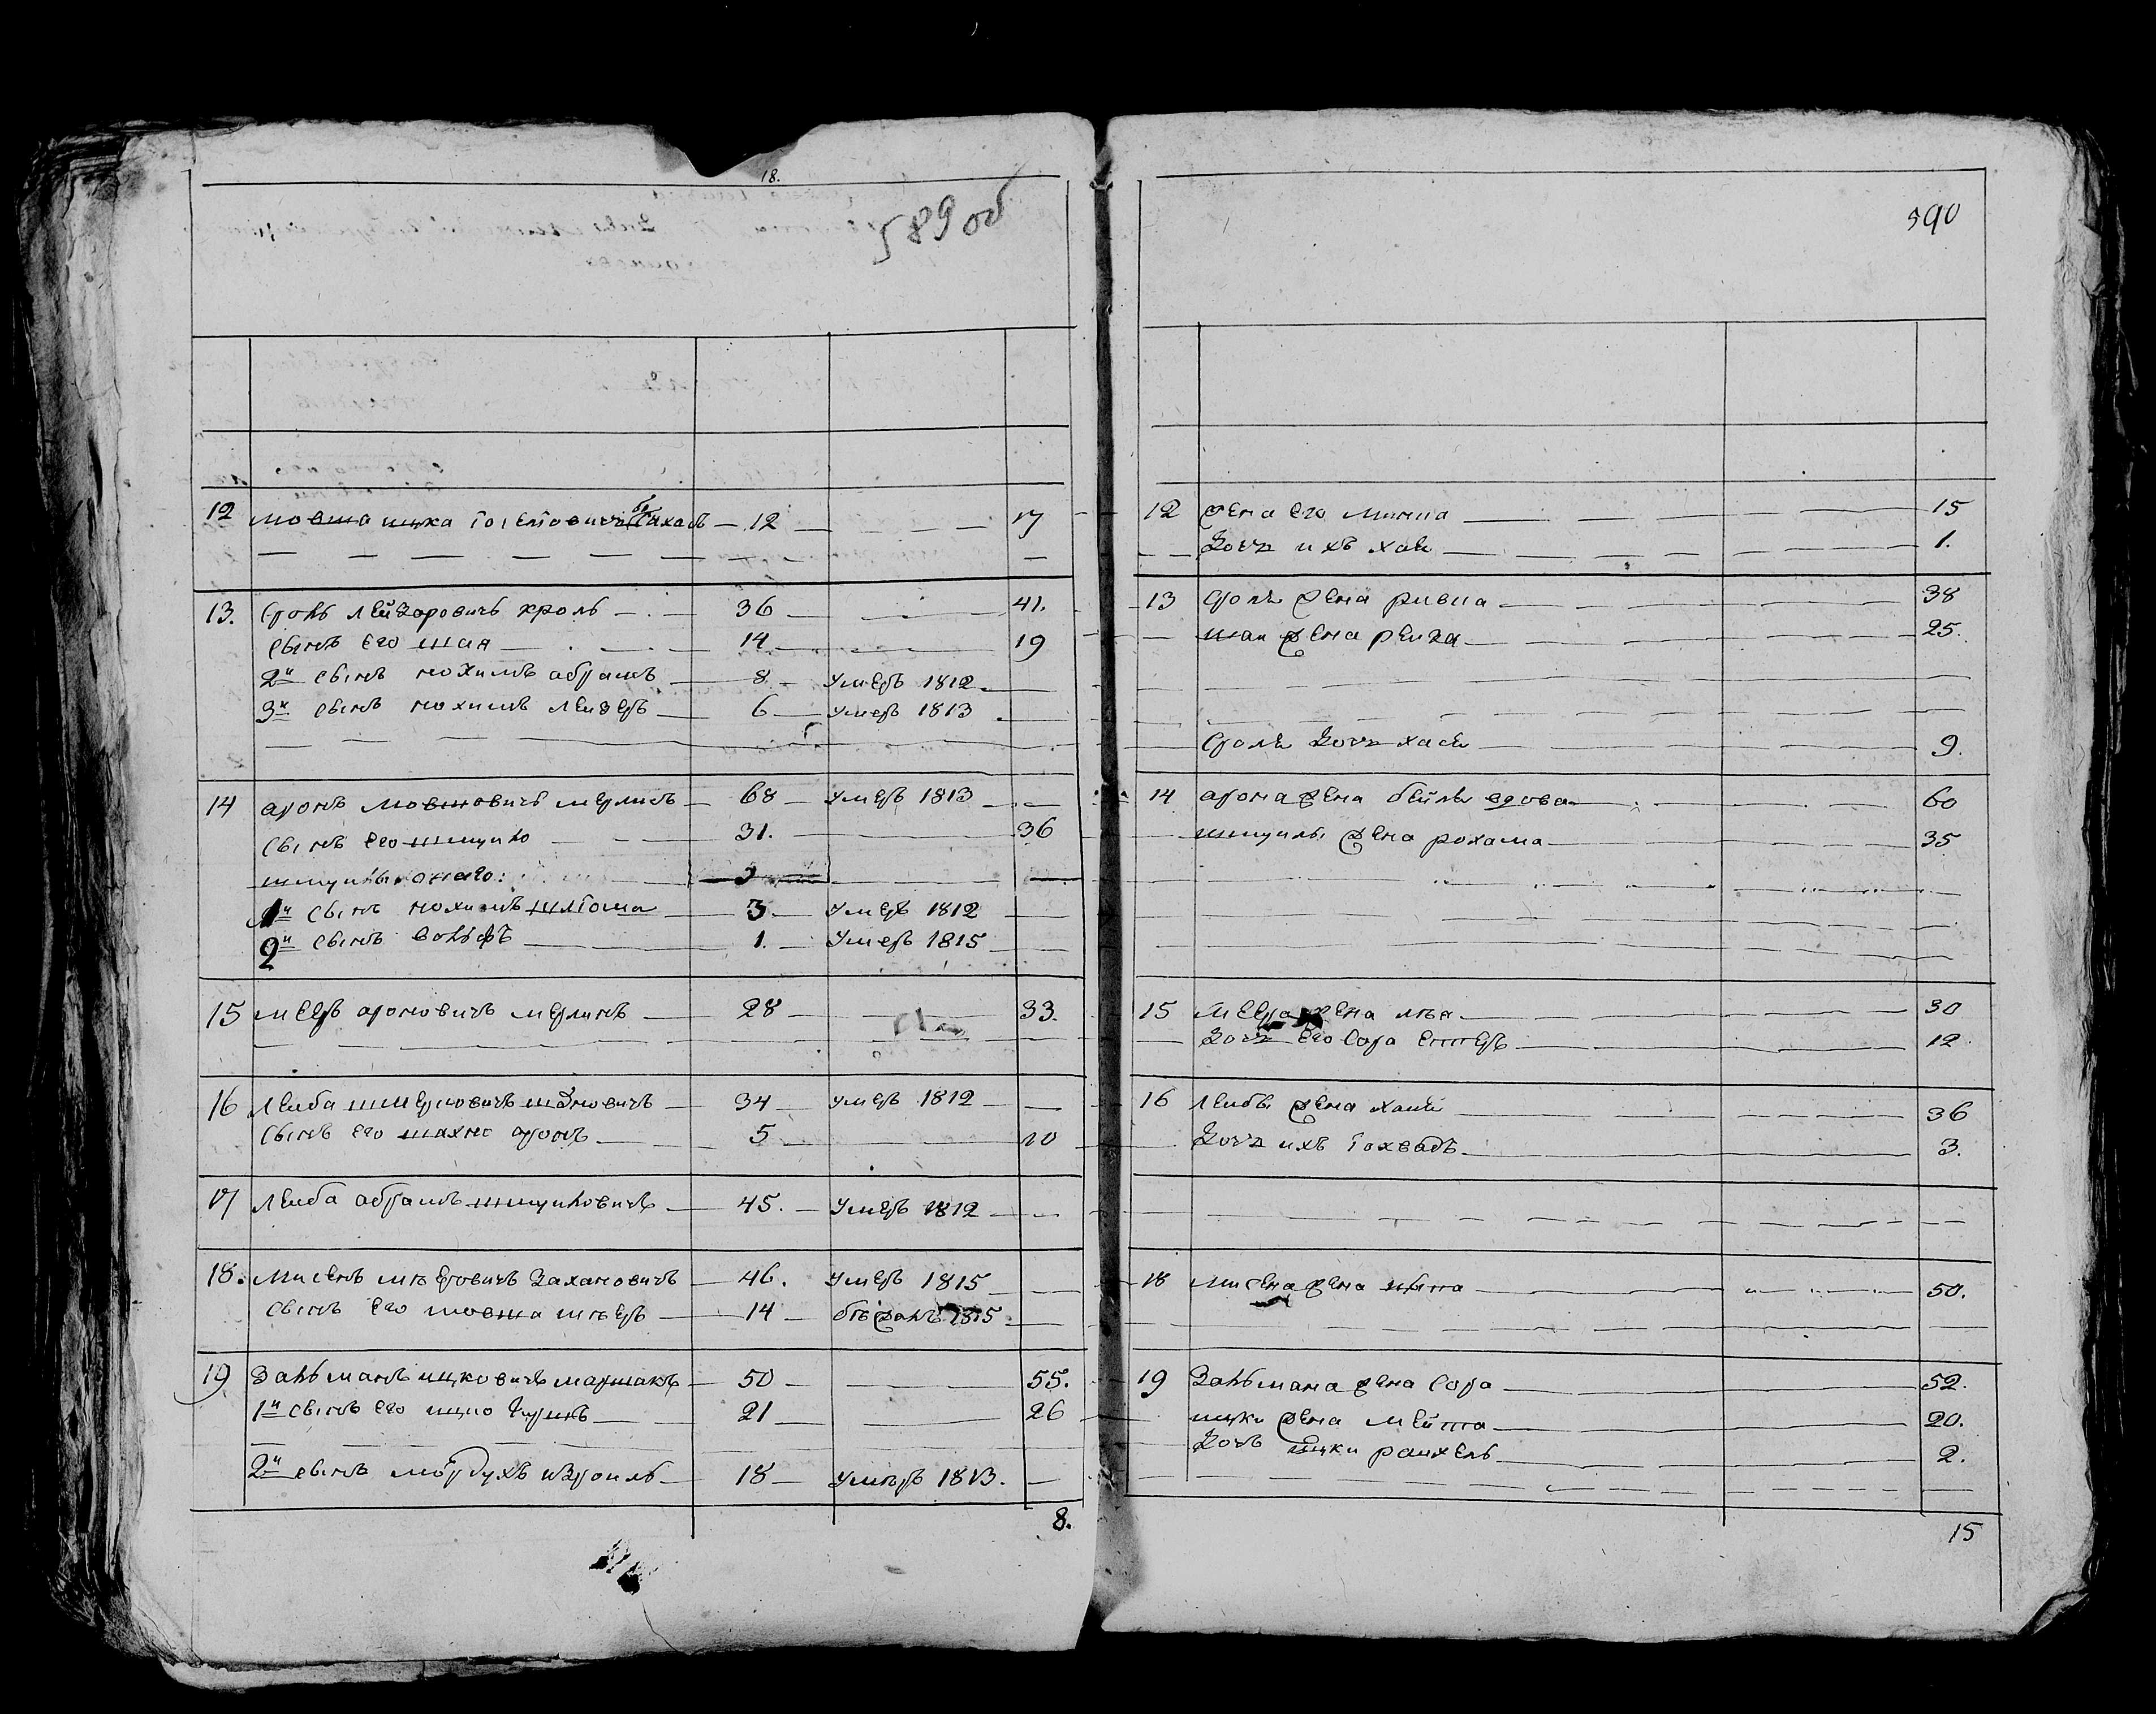 18.
589 об
12 Мовша ицка Іосеіовичъ — 12 — 17
13. Сроль Лейзоровичъ кроль — 36 — 41.
сынъ его шая — 14 — 19
2й сынъ нохимъ абрамъ — 8 — умеръ 1812
3й сынъ нохимъ лейзеръ — 6 — умеръ 1813
14 аронъ мовшовичъ мерлинъ — 68 — умеръ 1813
сынъ его шмуило 31. — 36
шмуилы онаго:
1й сынъ нохимъ шліома — 3 — умеръ 1812
2й сынъ вольфъ — 1. — умеръ 1815
15 мееръ ароновичъ мерлинъ — 28 — 33.
16 лейба шмерковичъ — 34 — умеръ 1812
сынъ его шахно аронъ — 5 — 10
17 лейба абрамъ шмуиловичъ — 45. — умеръ 1812
18. Мисенъ меровичъ захановичъ — 46. умеръ 1815
сынъ его мовша мееръ — 14 — бѣжалъ 1815
19 Зальманъ ицковичъ маршакъ — 50 — 55.
1й сынъ его ицко — 21 — 26
2й сынъ мордухъ израиль — 18 — умѣръ 1813.
8.
590
12 жена его минна — 15
дочь ихъ хая — 1.
13 сроля жена ривка — 38
шаи жена рейза — 25.
сроля дочь хася — 9.
14 арона жена бейля вдова — 60
шмуилы жена рохама — 35
15 меера жена лѣя — 30
дочь его сора естеръ — 12
16 лейбы жена хайя — 36
дочь ихъ іохведъ — 3.
18 мисена жена ципа — 50.
19 Зальмана жена сора — 52.
ицки жена мейта — 20.
дочь ицки райхель — 2.
15